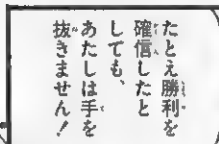 たとえ勝利を
確信したと
しても、
あたしは手を
抜きません！